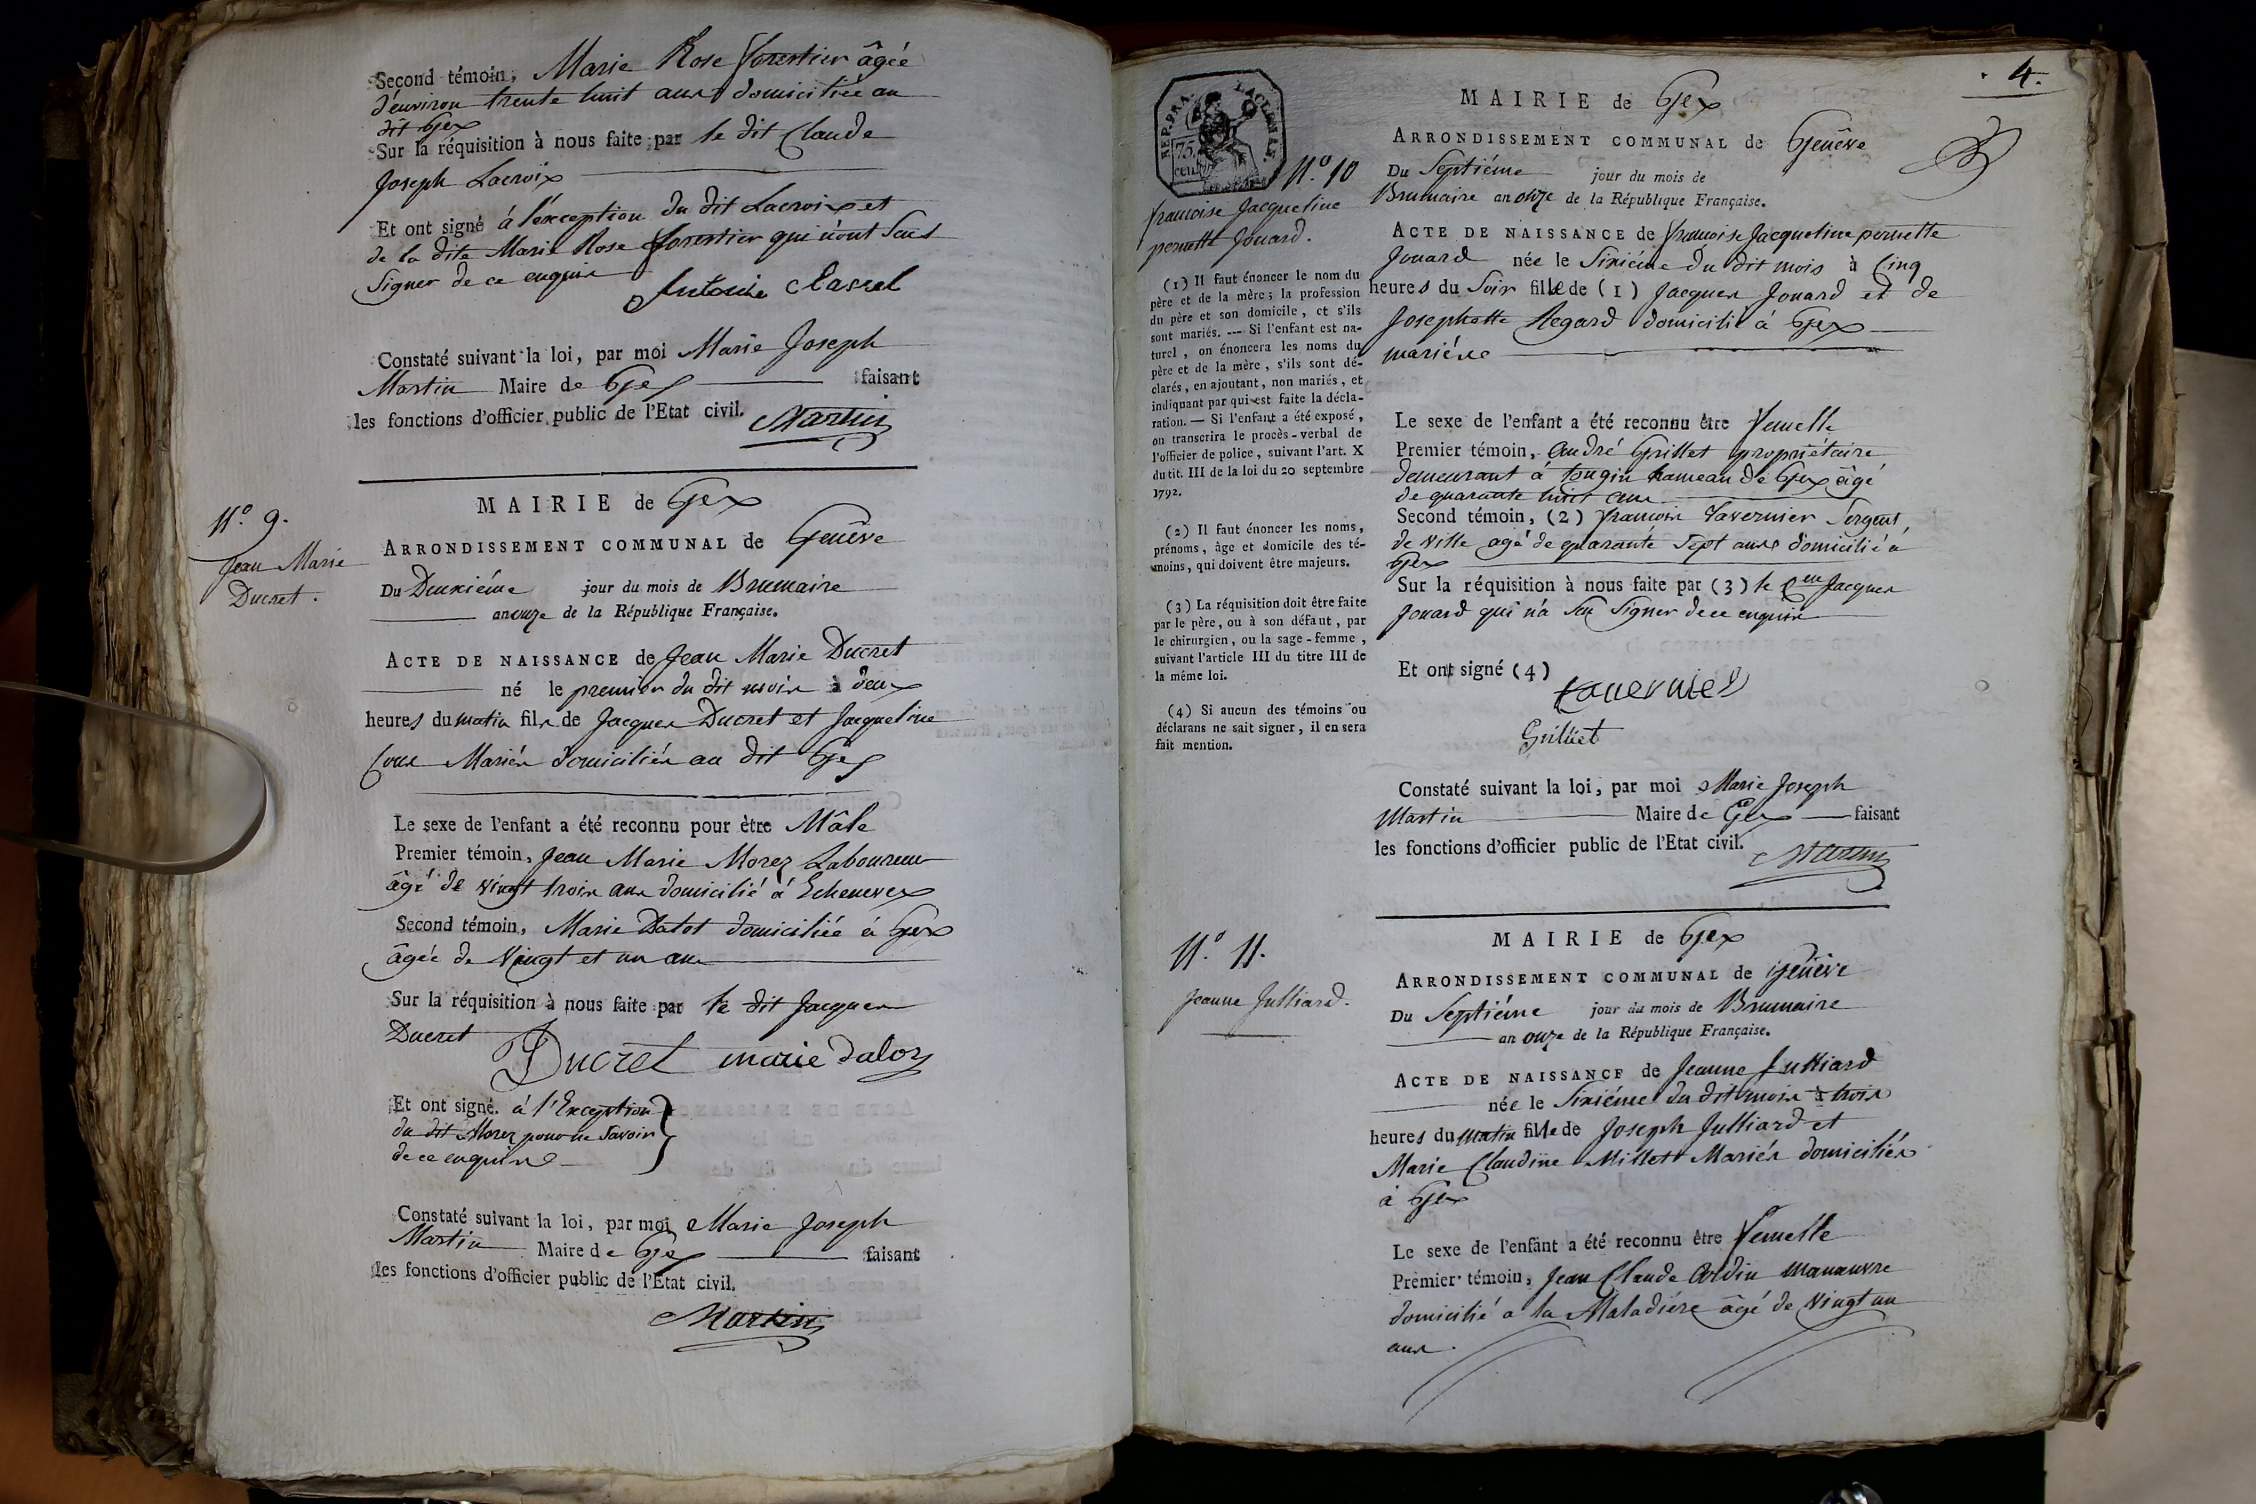 Second témoin, Marie Rose forestier âgée
d'environ trente huit ans domiciliée au
dit Gex
Sur la réquisition à nous faite par le dit Claude
Joseph Lacroix
Et ont signé à l'exception du dit Lacroix et
de la dite Marie Rose forestier qui n'ont Seus
Signer de ce enquis
Antoine
Constaté suivant la loi, par moi Marie Joseph
Martin Maire de Gex faisant
les fonctions d'officier public de l'Etat civil.
Martin
N.° 9.
Jean Marie
Ducret.
MAIRIE de Gex
ARRONDISSEMENT COMMUNAL de Genêve
Du Deuxiéme jour du mois de Brumaire
an onze de la République Française.
ACTE DE NAISSANCE de Jean Marie Ducret
né le premier du dit mois à deux
heures du matin fils de Jacques Ducret et Jacqueline
Mariés domiciliés au dit Gex
Le sexe de l'enfant a été reconnu pour être Mâle
Premier témoin, Jean Marie Morez Laboureur
âgé de vingt trois ans domicilié à Echenevex
Second témoin, Marie Dalot domiciliée à Gex
âgée de Vingt et un ans
Sur la réquisition à nous faite par le dit Jacques
Ducret
Ducret marie daloz
Et ont signé. à l'Exception
du dit Morez pour ne Savoir
de ce enquis
Constaté suivant la loi, par moi Marie Joseph
Martin Maire de Gex faisant
les fonctions d'officier public de l'Etat civil.
Martin
4.
REP. FRA.
75.
cen.
N.° 10
francoise Jacqueline
pernette Jouard.
(1) Il faut énoncer le nom du
père et de la mère; la profession
du père et son domicile, et s'ils
sont mariés. — Si l'enfant est na-
turel, on énoncera les noms du
père et de la mère, s'ils sont dé-
clarés, en ajoutant, non mariés, et
indiquant par qui est faite la décla-
ration. — Si l'enfant a été exposé,
on transcrira le procès-verbal de
l'officier de police, suivant l'art. X
du tit. III de la loi du 20 septembre
1792.
(2) Il faut énoncer les noms,
prénoms, âge et domicile des té-
moins, qui doivent être majeurs.
(3) La réquisition doit être faite
par le père, ou à son défaut, par
le chirurgien, ou la sage-femme,
suivant l'article III du titre III de
la même loi.
(4) Si aucun des témoins ou
déclarans ne sait signer, il en sera
fait mention.
MAIRIE de Gex
ARRONDISSEMENT COMMUNAL de Genêve
Du Septiéme jour du mois de
Brumaire an onze de la République Française.
ACTE DE NAISSANCE de francoise Jacqueline pernette
Jouard née le Sixiéme du dit mois à Cinq
heures du Soir fille de (1) Jacques Jouard et de
Josephatte Regard domicilié à Gex
mariéss
Le sexe de l'enfant a été reconnu être femelle
Premier témoin, andré Grillet propriétaire
demeurant à tougin hameau de Gex âgé
de quarante huit ans
Second témoin, (2) francois Tavernier Sergent
de ville agé de quarante Sept ans domicilié à
Gex
Sur la réquisition à nous faite par (3) le Cen Jacques
Jouard qui n'a Seu Signer de ce enquis
Et ont signé (4)
tavernier
Grilliet
Constaté suivant la loi, par moi Marie Joseph
Martin Maire de Gex faisant
les fonctions d'officier public de l'Etat civil.
Martin
N.° 11.
Jeanne Julliard.
MAIRIE de Gex
ARRONDISSEMENT COMMUNAL de Genêve
Du Septiéme jour du mois de Brumaire
an onze de la République Française.
ACTE DE NAISSANCE de Jeanne Julliard
née le Sixiéme du dit mois à trois
heures du matin fille de Joseph Julliard et
Marie Claudine Millet Mariés domiciliés
à Gex
Le sexe de l'enfant a été reconnu être femelle
Premier témoin, Jean Claude manœuvre
domicilié a la Maladiére âgé de Vingt un
ans.